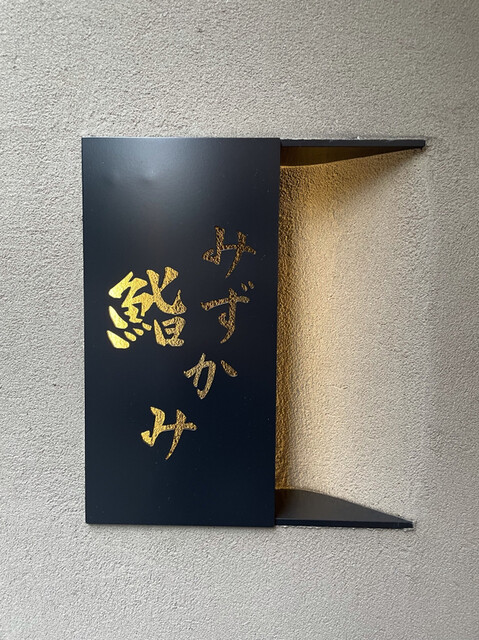 鮨
みずかみ